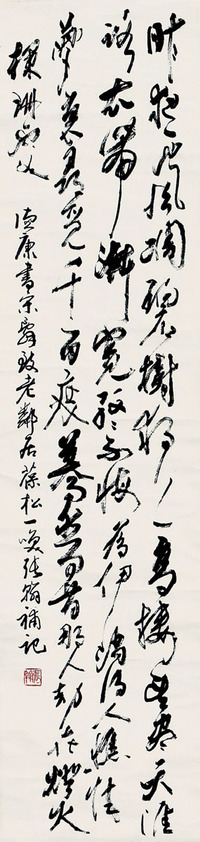 昨夜西風凋碧樹獨上高樓望盡天涯
路衣帶漸寬終不悔為伊消得人憔悴
裏尋千百度驀然回首那人却在燈火
珊處
康書宋老鄰居葆松一張翰補記